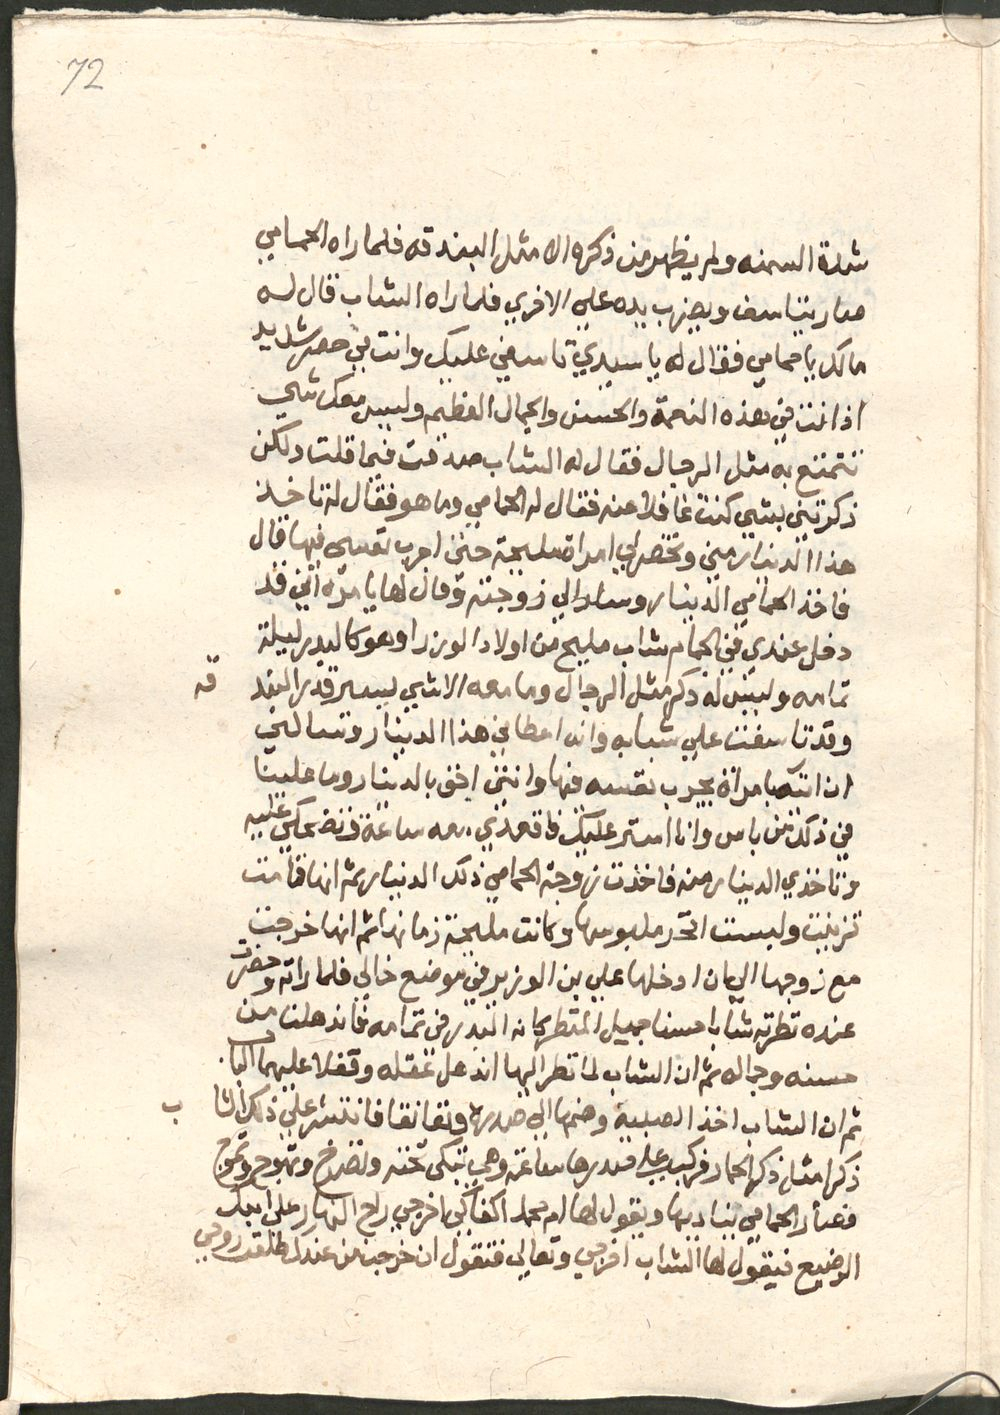 72
شدة السمنه ولم يظهر من ذكره الا مثل البندقه فلما راه الحمامي
صار يتاسف ويضرب يده علي الاخري فلما راه الشاب قال له
مالك يا حمامي فقال له يا سيدي تاسفي عليك وانت في حصر شديد
اذ انت في هذه النعمة والحسن والجمال العظيم وليس معك شي
تتمتع به مثل الرجال فقال له الشاب صدقت فيما قلت ولكن
ذكرتني بشي كنت غافلا عنه فقال له الحمامي وما هو فقال له تاخذ
هذا الدينار مني وتحضر لي امراة مليحة حتي اجرب نفسي فيها قال
فاخذ الحمامي الدينار وسار الي زوجته وقال لها يا مره انني قد
دخل عندي في الحمام شاب مليح من اولاد الوزرا وهو كالبدر ليلة
تمامه وليس له ذكر مثل الرجال وما معه الا شي يسير قدر البند
قه
وقد تاسفت علي شبابه وانه اعطاني هذا الدينار وتسالني
ان اتيه بامراة يجرب نفسه فيها وانتي احق بالدينار وما علينا
في ذلك من باس وانا استر عليك فاقعدي معه ساعة وتضحكي عليه
وتاخذي الدينار منه فاخذت زوجة الحمامي ذلك الدينار ثم انها قامت
تزينت ولبست افخر ملبوسها وكانت مليحة زمانها ثم انها خرجت
مع زوجها الي ان ادخلها علي بن الوزير في موضع خالي فلما راته وحضرت
عنده نظرته شابا حسنا جميل المنظر كانه البدر في تمامه فاندهلت من
حسنه وجماله ثم ان الشاب لما نظر اليها اندهل عقله وقفلا عليهما البا
ب
ثم ان الشاب اخذ الصبيه وضمها الي صدره وتعانقا فانتشر علي ذلك الشا
ذكرا مثل ذكر الحمار فركب علي صدرها ساعة وهي تبكي تحته وتصرخ وتهوج وتموج
فصار الحمامي يناديها ويقول لها ام محمد اكفاكي اخرجي راح النهار علي ابنك
الرضيع فيقول لها الشاب اخرجي وتعالي فتقول ان خرجت من عندك طلعت روحي